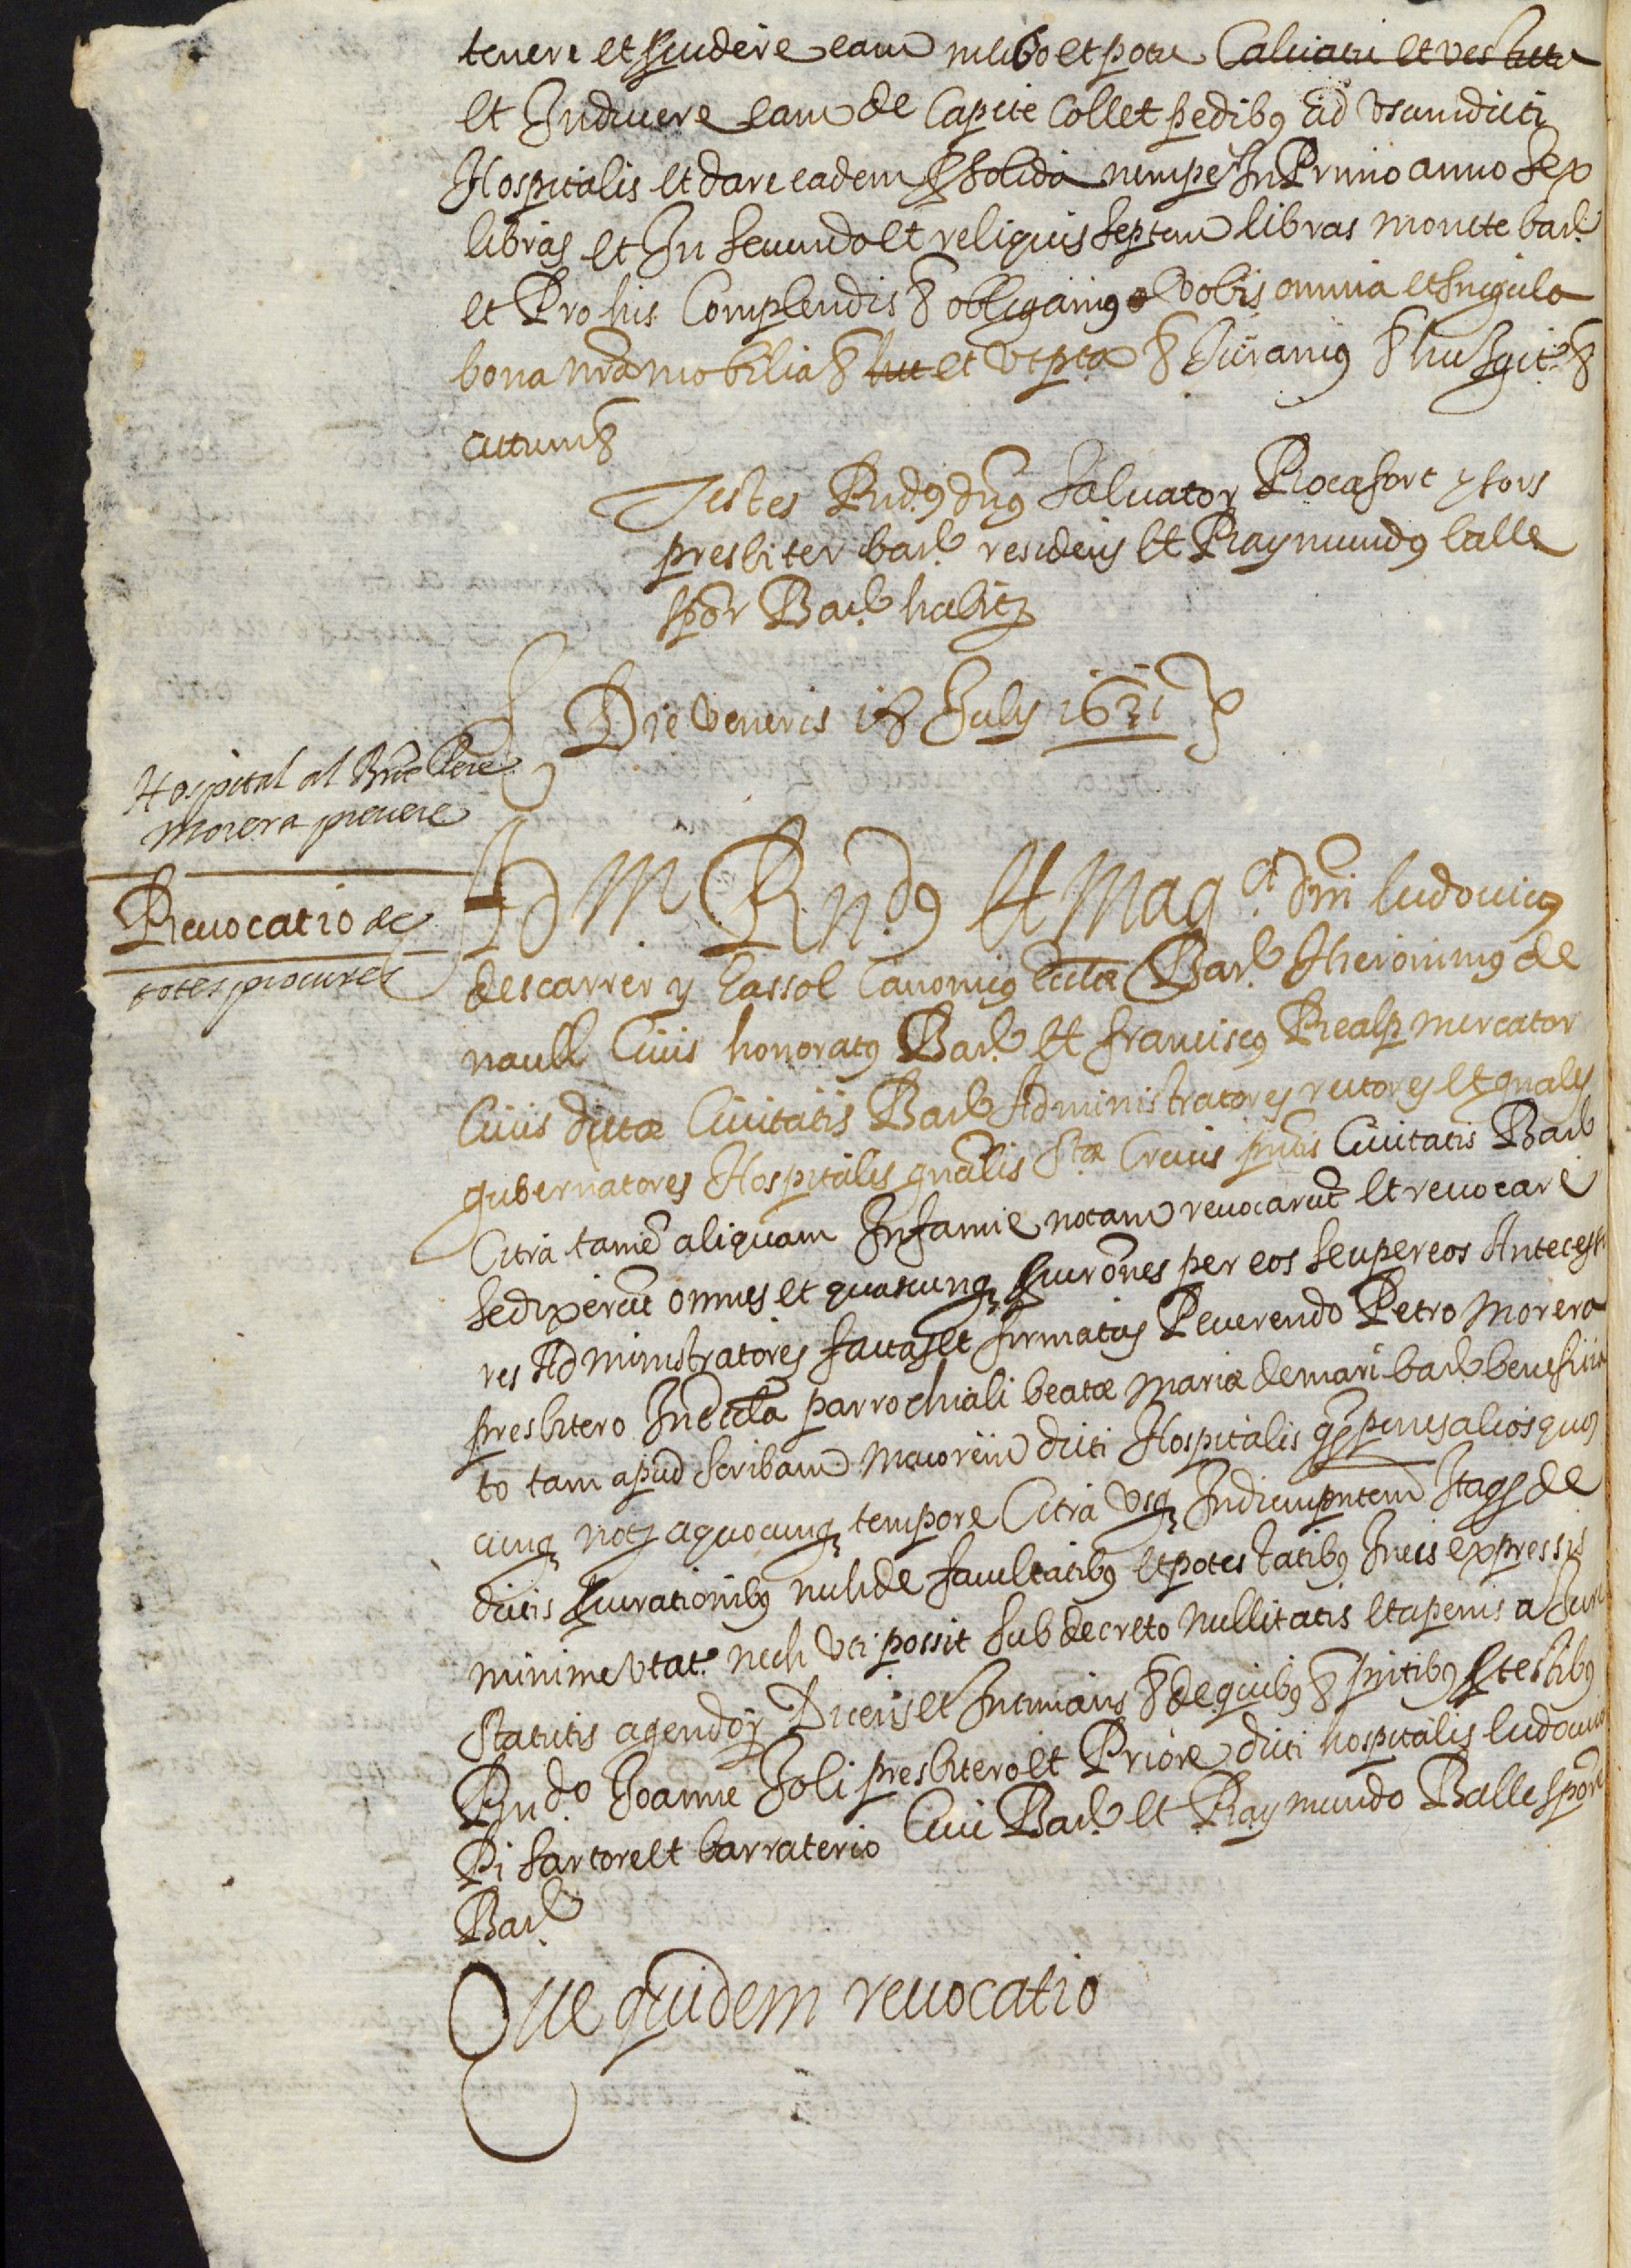 tenere et providere eam in cibo et potu Calciatu et vestitu
et Induere eam de Capite Collet pedibus ad Usum dicti
Hospitalis et dare eadem p solida nempe In Primo anno sex
libras et In secundo et reliquis septem libras monete barᵉ
et Pro his Complendis & obligamus Vobis omnia et singula
bona nrã mobilia & huc et ut pta & Juramus & hec Igitʳ &
actum &
Testes Rndus dns Saluator Rocafort y sors
presbiter barᵉ residens et Raymundus balle
spor Barᵉ habitʒ
Die Veneris 18 July 1631
Hospital al Rnt Pere
Morera preuere
Revocatio de
totes procures
Ad. M. R.ndus et Magci dñi ludouicus
descarrer y Cassol Canonicus Eccłæ Barᵉ Hieronimus de
nauel Ciuis honoratus Barᵉ et franciscus Realp mercator
Ciuis dictæ Ciuitatis Barᵉ Administratores rectores et gnales
gubernatores Hospitalis gnãlis Stæ Crucis pntis Ciuitatis Barᵉ
Citra tamē aliquam Infamie notam reuocarũt et reuocare
se dixerũt omnes et quascunq procurones per eos seu per eos Antecesso
res Administratores factas et firmatas Reuerendo Petro Morera
presbitero In eccła parrochiali beatæ Mariæ de mari barᵉ benefficia
to tam apud scribam Maiorem dicti Hospitalis qᵃ penes alios quos
cunq notʒ a quocunq tempore Citra Usq In diem pntem Itaq de
dictis procurationibus nich de facultatibus et potestatibus In eis expressis
minime Utatʳ nech Uti possit sub decreto nullitatis et a penis a Jure
statutis agendoȝ Dicens et Intimans & de quibus & pntibus p testibus
Rndo. Joanne Joli presbitero et Priore dicti hospitalis ludouico
Pi sartore et barraterio Ciui Barᵉ et Raymundo Balle spore
Barᵉ
Que quidem reuocatio